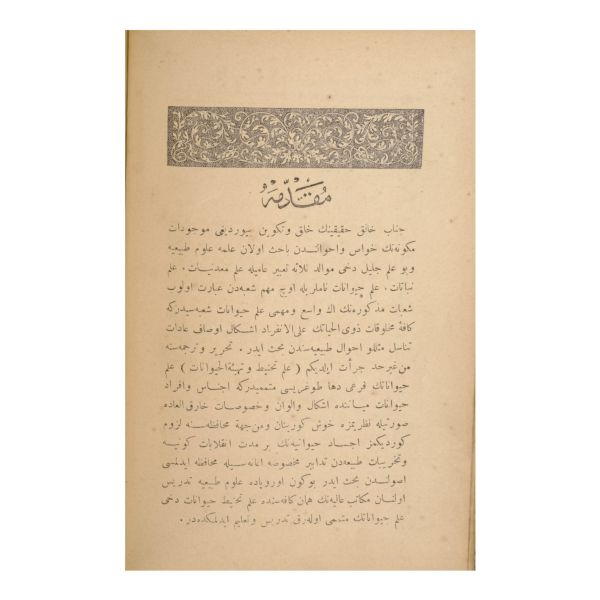 مقدّمه
جناب خالق حقیقینك خلق وتكوین بیوردیغی موجودات
مكونه‌نك خواص و احوالندن باحث اولان علمه علوم طبیعیه
وبو علم جلیل دخی موالد ثلاثه تعبیر عامیله علم معدنیات ، علم
نباتات ، علم حیوانات ناملریله اوچ مهم شعبه‌دن عبارت اولوب
شعبات مذكوره‌نك اك واسع ومهمی علم حیوانات شعبه‌سیدركه
كافهٔ مخلوقات ذوی الحیاتك علی الانفراد اشكال اوصاف عادات
تناسل مثللو احوال طبیعیه‌سندن بحث ایدر . تحریر وترجمه‌سنه
من غیر حد جرأت ایلدیكم ( علم تحنیط وتهیئة الحیوانات ) علم
حیواناتك فرعی دها طوغریسی متممیدركه اجناس وافراد
حیوانات میاننده اشكال والوان وخصوصات خارق العاده
صورتیله نظریمزه خوش كورینان ومن جهة محافظه‌سنه لزوم
كوردیكمز اجساد حیوانیه‌نك بر مدت انقلابات كونیه
وتخریبات طبیعه‌دن تدابیر مخصوصه اعانه‌سیله محافظه ایدلمسی
اصولندن بحث ایدر بوكون اوروپاده علوم طبیعیه تدریس
اولنان مكاتب عالیه‌نك همان كافه‌سنده علم تحنیط حیوانات دخی
علم حیواناتك متممی اوله‌رق تدریس وتعلیم ایدلمكده‌در .